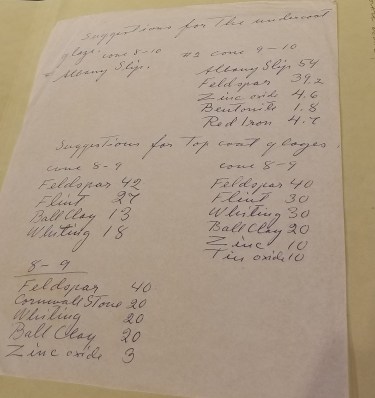 Suggestions for The undercoat
glaze cone 8-10
Albany Slip.
#2 cone 9-10
Albany Slip 54
Feldspar 39.2
Zinc oxide 4.6
Bentonite 1.8
Red Iron 4.7
Suggestions for Top coat glazes
cone 8-9
Feldspar 42
Flint 27
Ball Clay 13
Whiting 18
cone 8-9
Feldspar 40
Flint 30
Whiting 30
Ball Clay 20
Zinc 10
Tin oxide 10
8-9
Feldspar 40
Cornwall Stone 20
Whiting 20
Ball Clay 20
Zinc oxide 3